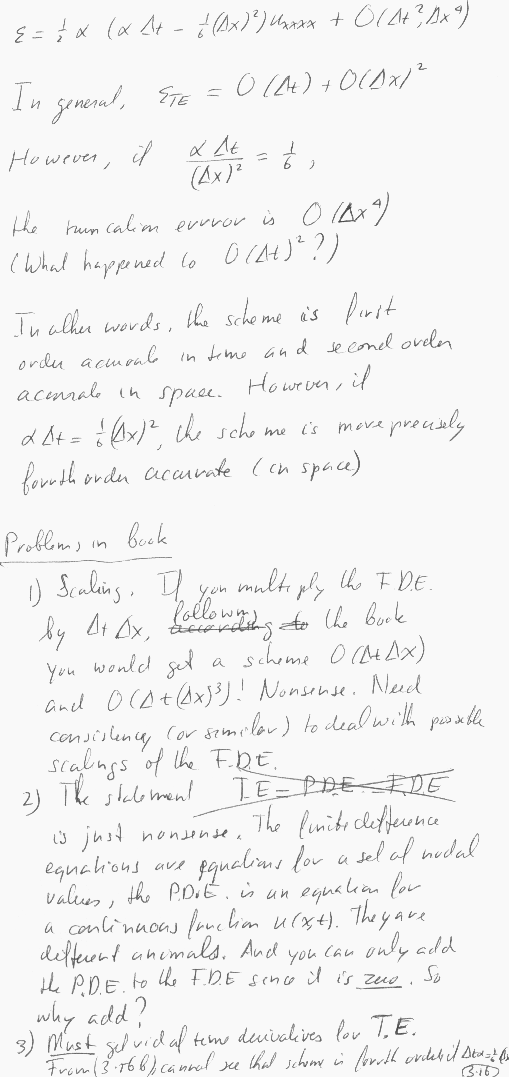 ε = ½ α (α Δt - ⅙(Δx)²) uxxxx + O(Δt², Δx⁴)
In general, εTE = O(Δt) + O(Δx)²
However, if α Δt / (Δx)² = 1/6 ,
the truncation error is O(Δx⁴)
(What happened to O(Δt)² ?)
In other words, the scheme is first
order accurate in time and second order
accurate in space. However, if
α Δt = ⅙(Δx)², the scheme is more precisely
fourth order accurate (in space)
Problems in book
1) Scaling. If you multiply the F.D.E.
by Δt Δx, following the book
you would get a scheme O(Δt Δx)
and O(Δt(Δx)³)! Nonsense. Need
consistency (or similar) to deal with possible
scalings of the F.D.E.
2) The statement T.E = P.D.E - F.D.E
is just nonsense. The finite difference
equations are equations for a set of nodal
values, the P.D.E. is an equation for
a continuous function u(x,t). They are
different animals. And you can only add
the P.D.E. to the F.D.E since it is zero. So
why add?
3) Must get rid of time derivatives for T.E.
From (3.166) cannot see that scheme is fourth order if
(3.16)